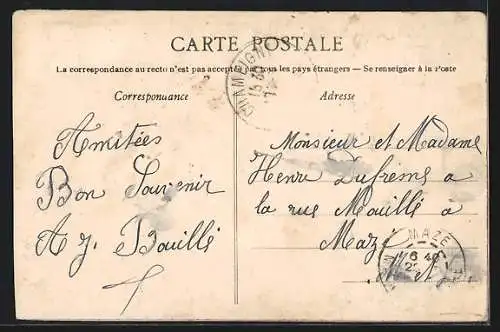 CARTE POSTALE
La correspondance au recto n'est pas acceptée par tous les pays étrangers — Se renseigner à la Poste
Correspondance
Adresse
Amitées
Bon Souvenir
A J. Bouillé
Monsieur et Madame
Henri Dufresne a
la rue Mouillé à
Mazé
M et L
MAZÉ
6 40